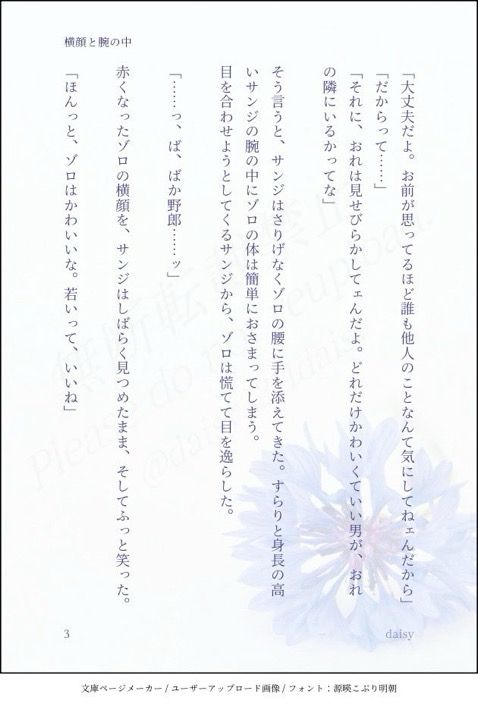 横顔と腕の中
「大丈夫だよ。お前が思ってるほど誰も他人のことなんて気にしてねェんだから」
「だからって……」
「それに、おれは見せびらかしてェんだよ。どれだけかわいくていい男が、おれ
の隣にいるかってな」
そう言うと、サンジはさりげなくゾロの腰に手を添えてきた。すらりと身長の高
いサンジの腕の中にゾロの体は簡単におさまってしまう。
目を合わせようとしてくるサンジから、ゾロは慌てて目を逸らした。
「……っ、ば、ばか野郎……ッ」
赤くなったゾロの横顔を、サンジはしばらく見つめたまま、そしてふっと笑った。
「ほんっと、ゾロはかわいいな。若いって、いいね」
3
daisy
無断転載禁止
Please do not reupload.
@daisy
文庫ページメーカー / ユーザーアップロード画像 / フォント：源暎こぶり明朝